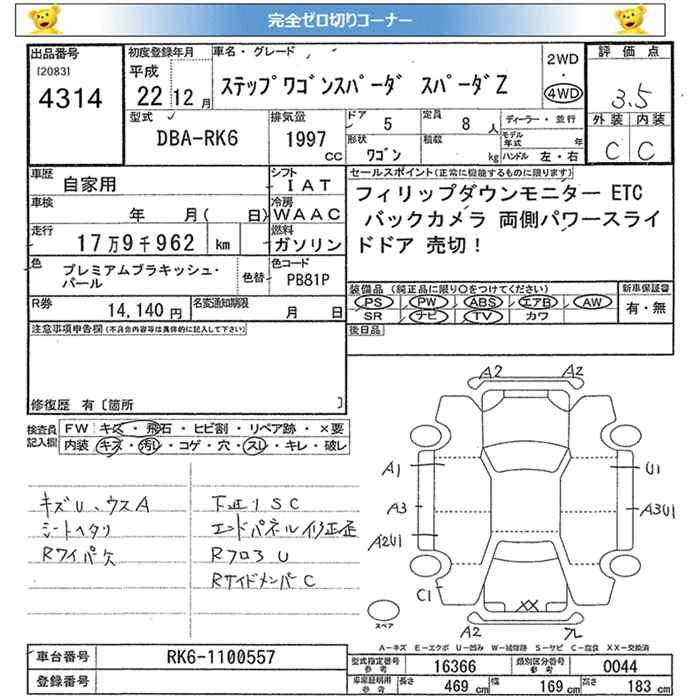 完全ゼロ切りコーナー
出品番号
[2083]
4314
初度登録年月
平成
22 12 月
車名・グレード
ステップワゴンスパーダ スパーダZ
2WD
・
4WD
評価点
3.5
外装 内装
C C
型式
DBA-RK6
排気量
1997
CC
ドア
5
定員
8 人
形状
ワゴン
積載
kg
ディーラー・並行
モデル年式 年
ハンドル 左・右
車歴
自家用
シフト
IAT
車検
年 月( 日)
冷房
WAAC
走行
17万9千962 km
燃料
ガソリン
色
プレミアムブラキッシュ・パール
色替
色コード
PB81P
R券
14,140 円
名変通知期限
月 日
セールスポイント(正常に機能するものに限ります)
フィリップダウンモニター ETC
バックカメラ 両側パワースライ
ドドア 売切!
装備品 (純正品に限り○をつけてください)
PS PW ABS エアB AW
SR ナビ TV カワ
新車保証書
有・無
後日品
注意事項申告欄(不具合内容等は具体的に記入して下さい)
修復歴 有〔箇所 〕
検査員記入欄
FW キズ・飛石・ヒビ割・リペア跡・×要
内装 キズ・汚レ・コゲ・穴・スレ・キレ・破レ
キズU、ウスA
シートヘタリ
Rワイパ欠
下廻りSC
エンドパネル修正歪
Rフロア U
RサイドメンバーC
A2 A2
A1 U1
A3 A3U1
A2U1
C1
XX
A2
スペア
A−キズ E−エクボ U−凹み W−補修跡 S−サビ C−腐食 XX−交換済
車台番号
RK6-1100557
登録番号
型式指定番号
参考
16366
類別区分番号
参考
0044
車庫証明用
参考
長さ 469 cm 幅 169 cm 高さ 183 cm